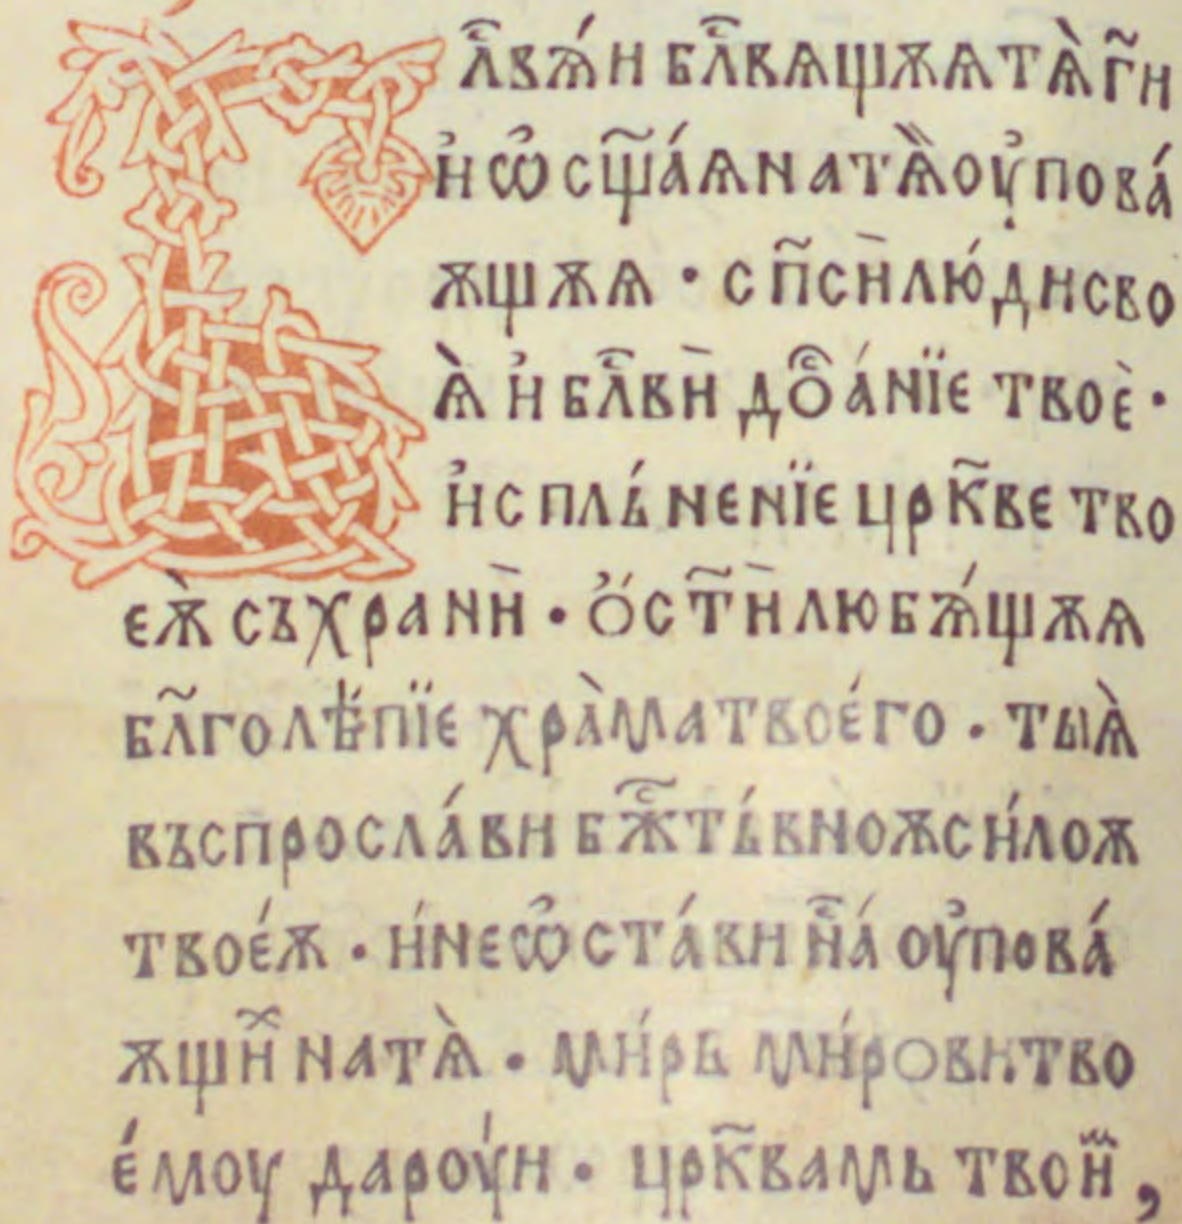 Бл҃вѧ́и бл҃вѧщѫѧ тѧ̀ г҃и
и҆ ѡ҆сщ҃а́ѧ на тѧ̏ оу҆пова́
ѫщѫѧ · сп҃сѝ лю́ди сво
ѧ̀ и҆ бл҃вѝ до҇а́нїе твоѐ ·
и҆сплъ́ненїе црк҃ве тво
еѫ̀ съхранѝ · ѻ҆ст҃ѝ любѧ́щѫѧ
бл҃голѣ́пїе хра̀ма твоего · тыѧ̀
въспросла́ви бж҇тъ́вноѫ си́лоѫ
твое́ѫ · и́ не ѡ҆ста́ви н҇а́ оу҆пова́
ѫщи̽ на тѧ̀ · ми́рь ми́рови тво
е́моу дароу́и · црк҃вамь твои̋ ,